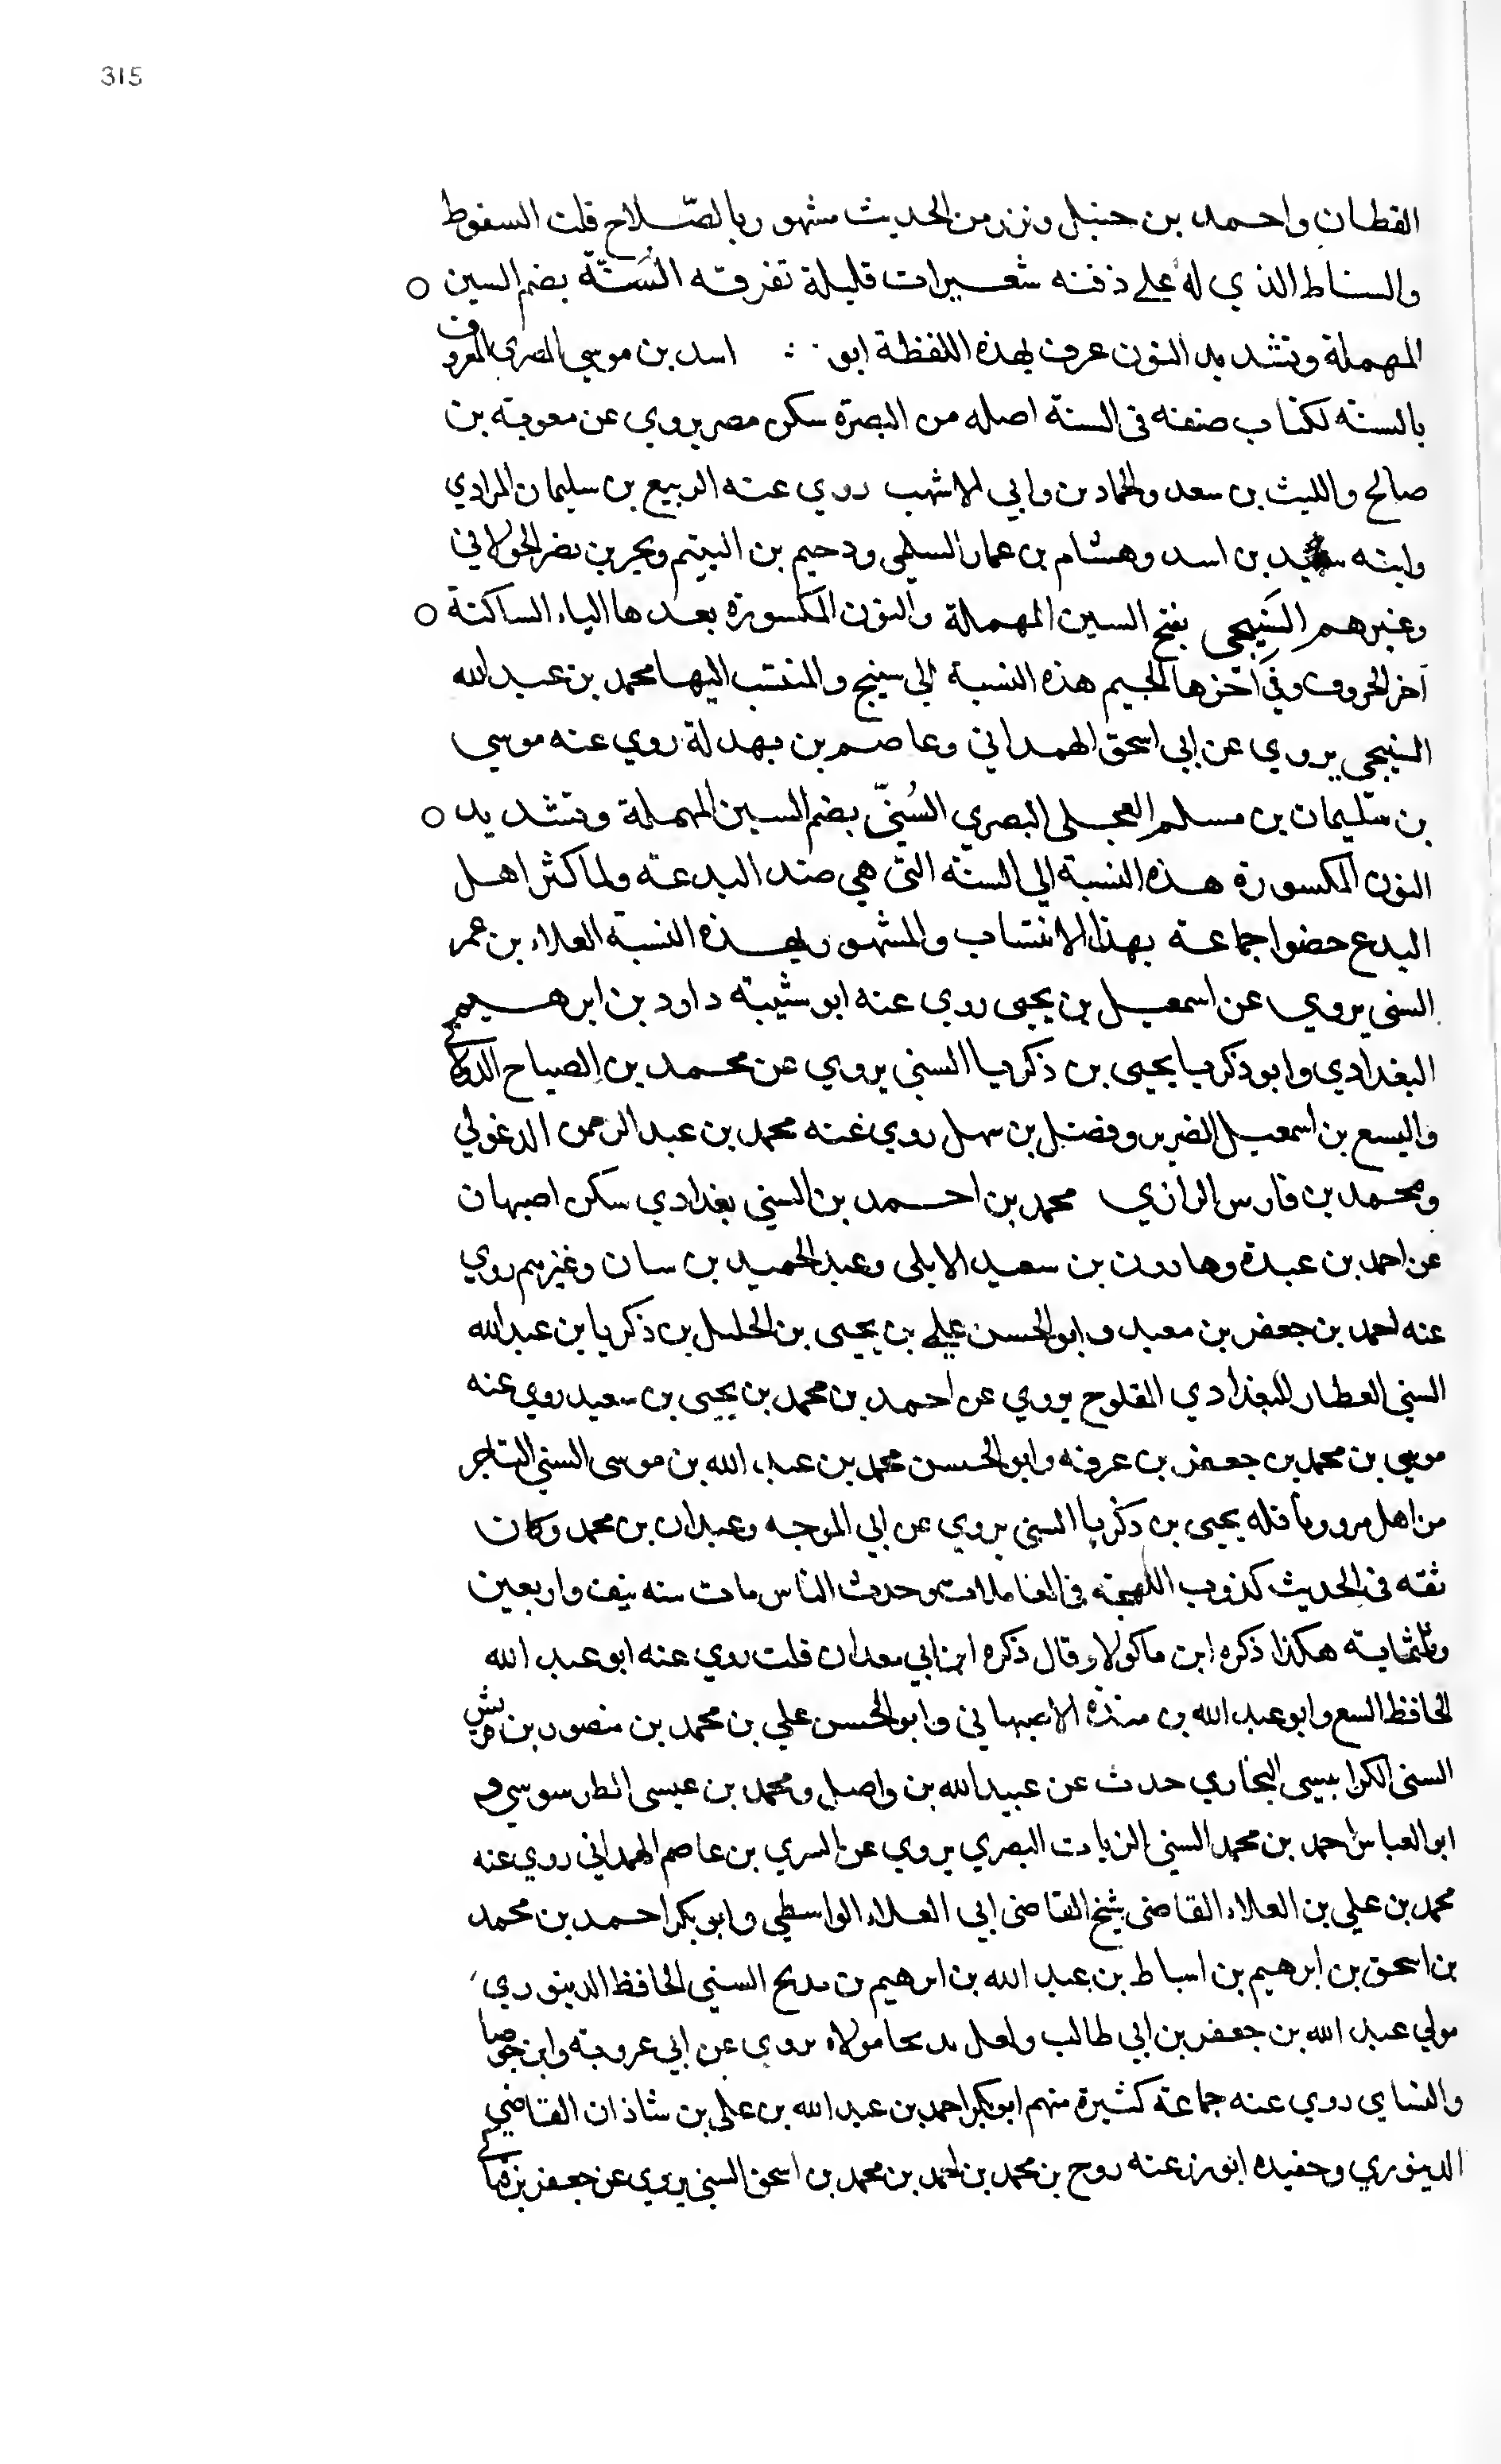 315
القطان واحمد بن حنبل ونزر من الحديث مشهور بالصّلاح قلت السفوط
والسناط الذي له على ذقنه شعيرات قليلة تفرقه السُنّة بضم السين ○
المهملة وتشديد النون عرف بهذه اللفظة ابو : اسد بن موسي المصري المعروف
بالسنه لكتاب صنفه في السنة اصله من البصرة سكن مصر يروي عن معويه بن
صالح والليث بن سعد والحمادين وابي الاشهب روي عنه الربيع بن سليمان المرادي
وابنه سعيد بن اسد وهشام بن عمار السلمي ودحيم بن اليتيم وبحر بن نصر الخولاني
وغيرهم السَنِيجي بفتح السين المهملة والنون المكسورة بعدها الياء الساكنة ○
آخر الحروف وفي آخرها الجيم هذه النسبة الي سينج والمنتسب اليها محمد بن عبد الله
السنيجي يروي عن ابي اسحق الهمداني وعاصم بن بهدلة روي عنه موسي
بن سليمان بن مسلم العجلي البصري السُنيّ بضم السين المهملة وتشديد ○
النون المكسورة هذه النسبة الي السنه التي هي ضد البدعة ولما كثر اهل
البدع خصوا جماعة بهذا الانتساب والمشهور بهذه النسبة العلاء بن عمر
السني يروي عن اسمعيل بن يحيى روي عنه ابو شيبه داود بن ابرهيم
البغدادي وابو ذكريا يحيى بن ذكريا السني يروي عن محمد بن الصباح الدولابي
واليسع بن اسمعيل الضرير وفضل بن سهل روي عنه محمد بن عبد الرحمن الدغولي
ومحمد بن فارس الرازي محمد بن احمد بن السني بغدادي سكن اصبهان
عن احمد بن عبدة وهارون بن سعيد الابلي وعبد الحميد بن سان وغيرهم روي
عنه احمد بن جعفر بن معبد وابو الحسن علي بن يحيى بن الخليل بن ذكريا بن عبد الله
السني العطار البغدادي المفلوج يروي عن احمد بن محمد بن يحيى بن سعيد روي عنه
موسي بن محمد بن جعفر بن عرفه وابو الحسن محمد بن عبد الله بن موسى السني التاجر
من اهل مرو ونافله يحيى بن ذكريا السني يروي عن ابي الموجه وعبدان بن محمد وكان
ثقه في الحديث كذوب اللهجة في المعاملات وحدث الناس مات سنه نيف واربعين
وثلثمايه هكذا ذكره ابن ماكولا وقال ذكره ابن ابي معدان قلت روي عنه ابو عبد الله
الحافظ البيع وابو عبد الله بن مندة الاصبهاني وابو الحسن علي بن محمد بن منصور بن قريش
السني الكرابيسي البخاري حدث عن عبيد الله بن واصل ومحمد بن عيسى الطرسوسي و
ابو العباس احمد بن محمد السني الزيات البصري يروي عن السري بن عاصم الهمداني روي عنه
محمد بن علي بن العلاء القاضي شيخ القاضي ابي العلاء الواسطي وابو بكر احمد بن محمد
بن اسحق بن ابرهيم بن اسباط بن عبد الله بن ابرهيم بن بديح السني الحافظ الدينوري
مولي عبد الله بن جعفر بن ابي طالب ولعل بديحا مولاه يروي عن ابي عروبة وابن جوصا
والنساي روي عنه جماعة كثيرة منهم ابو بكر احمد بن عبد الله بن علي بن شاذان القاضي
الدينوري وحفيده ابو زرعه روح بن محمد بن احمد بن محمد بن اسحق السني يروي عن جعفر بن